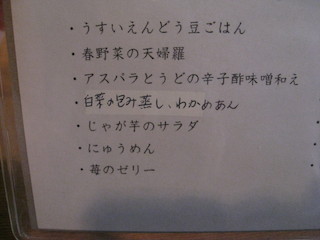 ・うすいえんどう豆ごはん
・春野菜の天婦羅
・アスパラとうどの辛子酢味噌和え
・白菜の包み蒸し、わかめあん
・じゃが芋のサラダ
・にゅうめん
・苺のゼリー